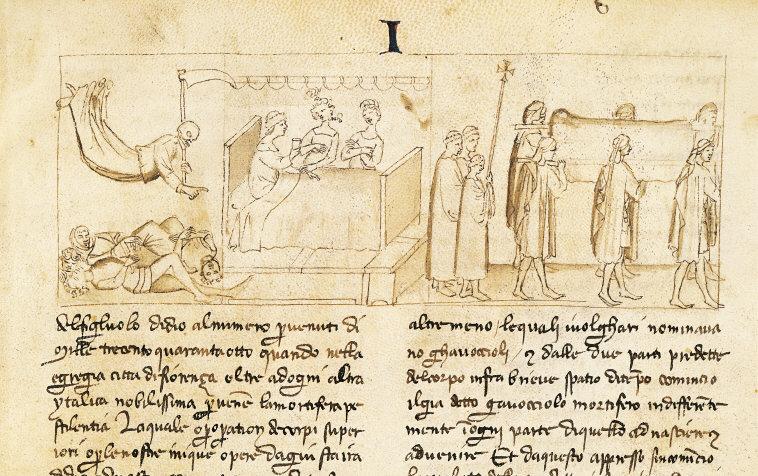 I
del figluolo didio alnumero puenuti di
Mille trecento quaranta otto quando nella
egregia citta di fiorenza oltre adogni altra
ytalica nobilissima puēne lamortifera pe
stilentia Laquale p opation decorpi super
iori o p le nostre inique opere da giusta ira
altre meno / lequali i volghari nominaua
no ghauoccioli / 7 dalle due parti predette
delcorpo infra brieue spatio di tēpo comincio
il gia detto gauocciolo mortifero indifferēte
mente ī ogni parte di quello ad nascere 7
aduenire Et da questo appresso sincomīcio